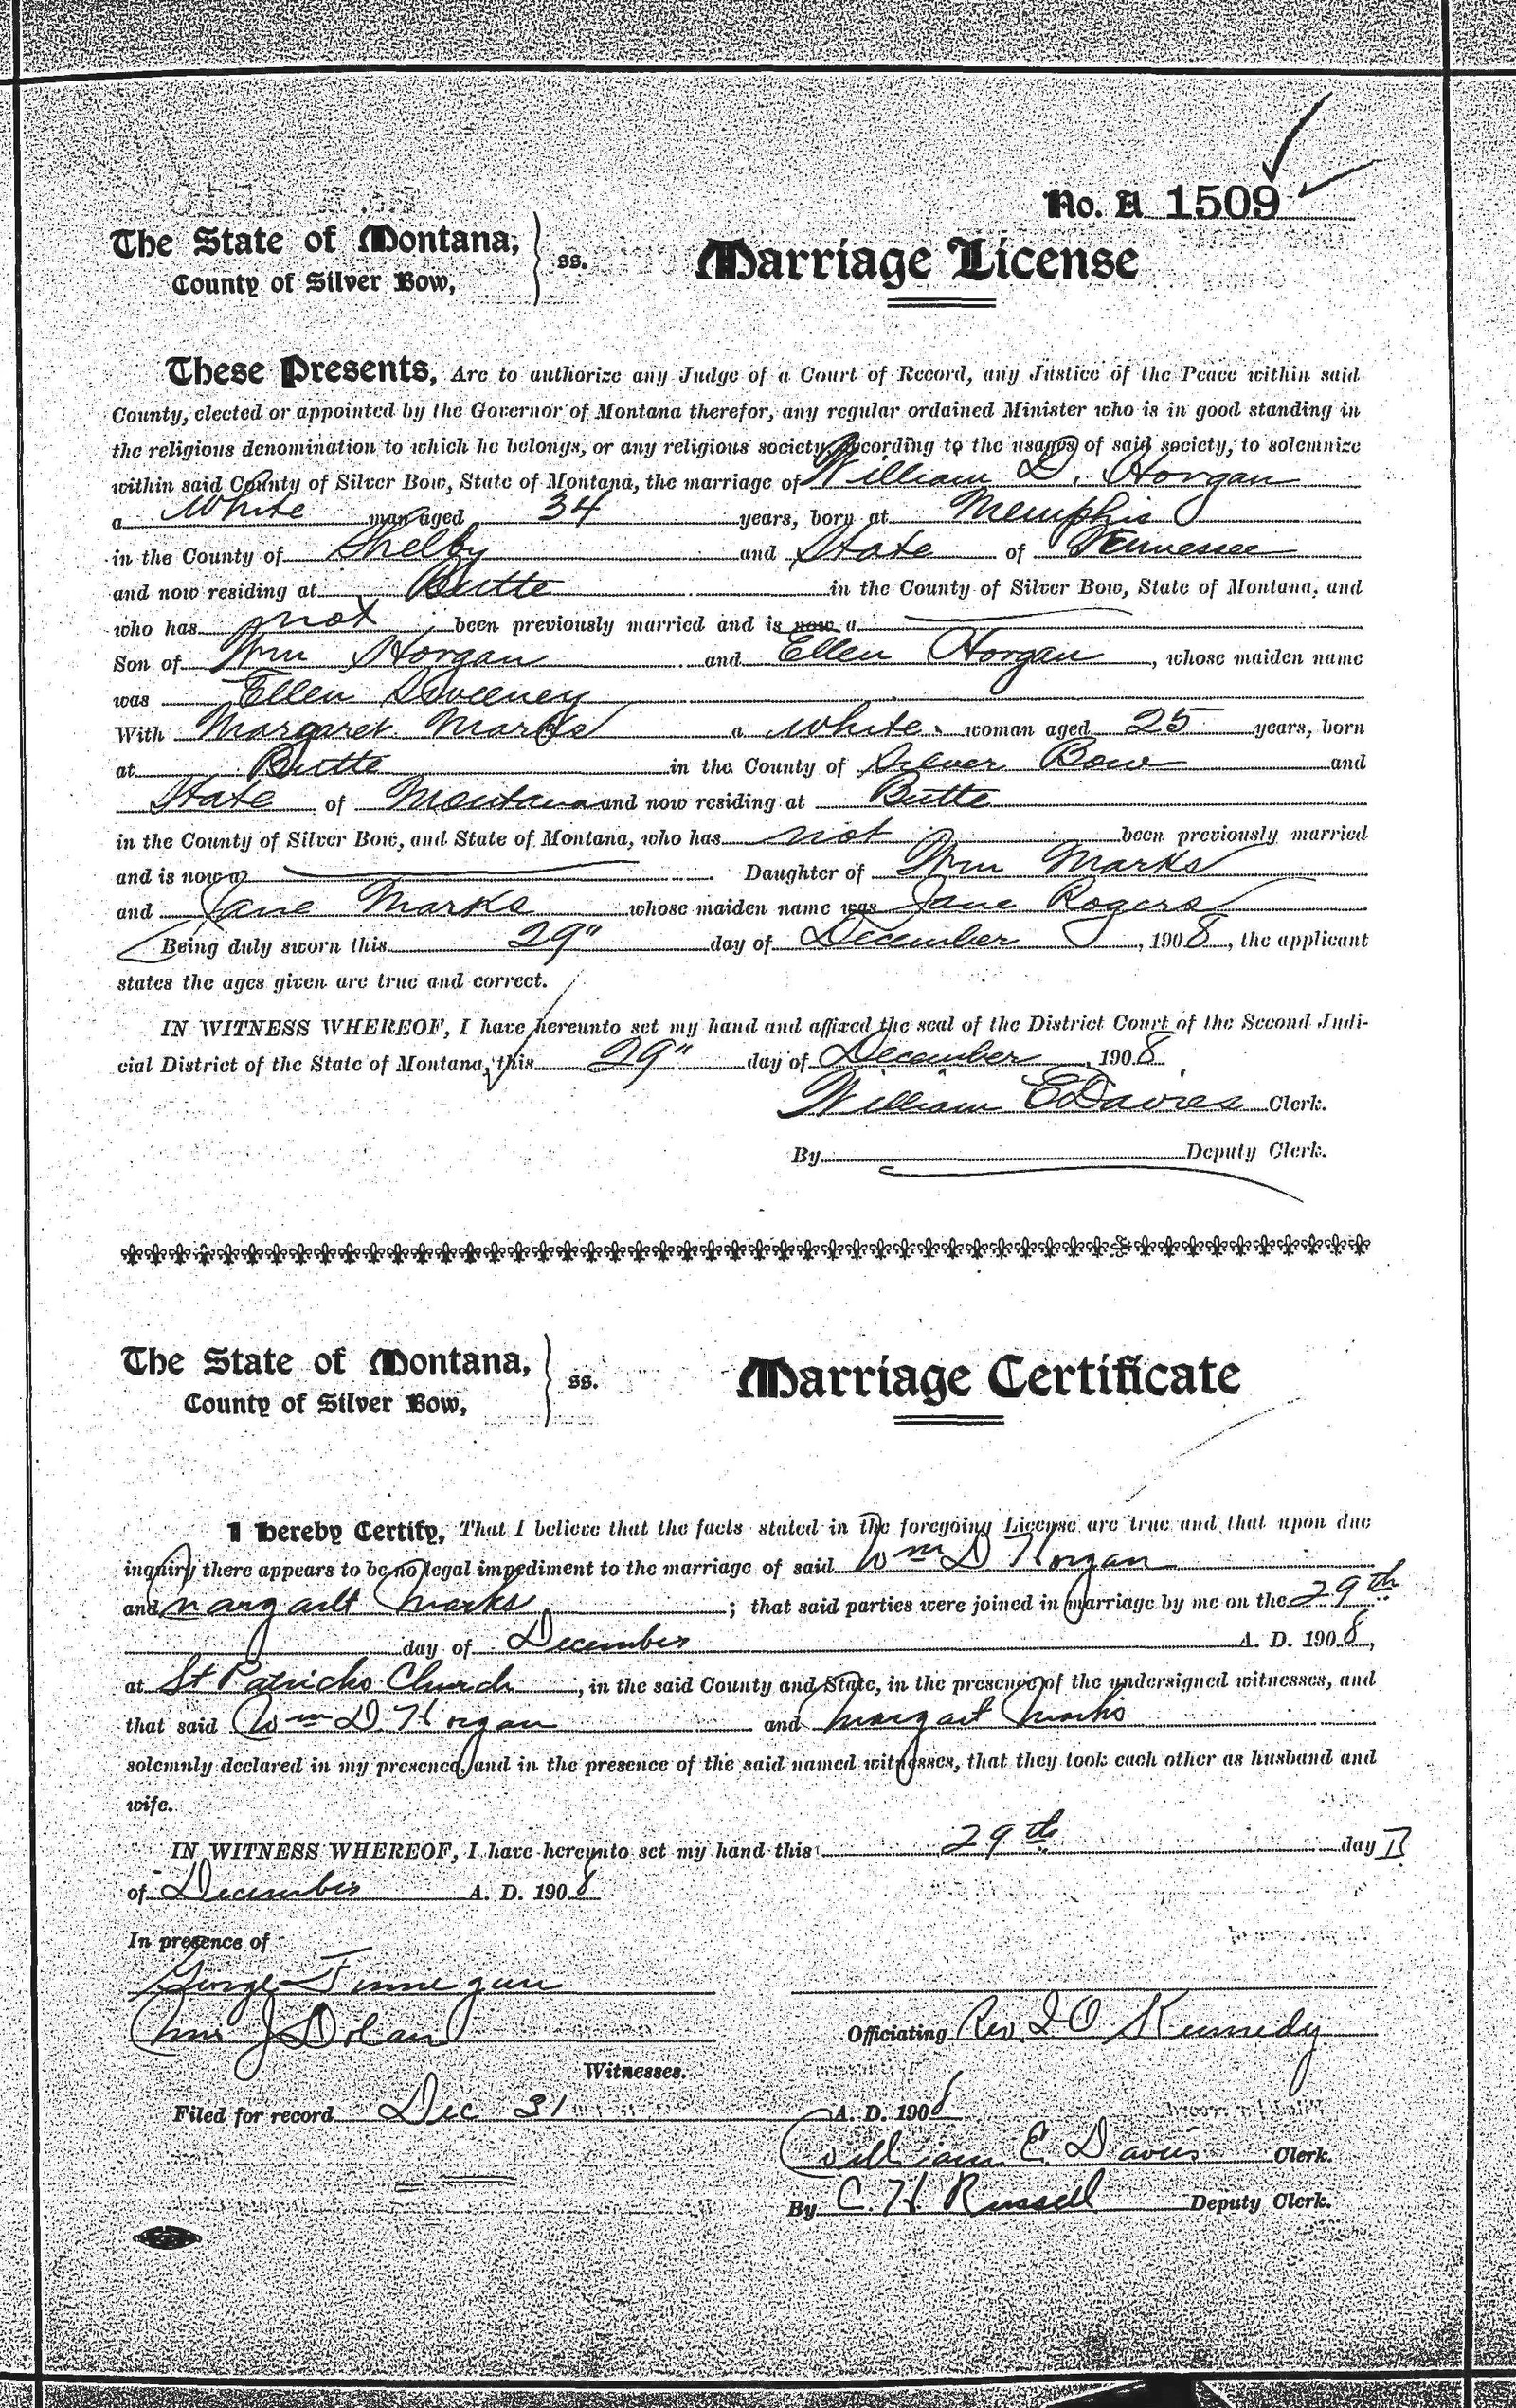 No. A 1509
The State of Montana, ss. Marriage License
County of Silver Bow,
These Presents, Are to authorize any Judge of a Court of Record, any Justice of the Peace within said
County, elected or appointed by the Governor of Montana therefor, any regular ordained Minister who is in good standing in
the religious denomination to which he belongs, or any religious society, according to the usages of said society, to solemnize
within said County of Silver Bow, State of Montana, the marriage of William D. Horgan
a White man aged 34 years, born at Memphis
in the County of Shelby and State of Tennessee
and now residing at Butte in the County of Silver Bow, State of Montana, and
who has not been previously married and is now a
Son of Wm Horgan and Ellen Horgan, whose maiden name
was Ellen Sweeney
With Margaret Marks a White woman aged 25 years, born
at Butte in the County of Silver Bow and
State of Montana and now residing at Butte
in the County of Silver Bow, and State of Montana, who has not been previously married
and is now a Daughter of Wm Marks
and Jane Marks whose maiden name was Jane Rogers
Being duly sworn this 29" day of December, 1908, the applicant
states the ages given are true and correct.
IN WITNESS WHEREOF, I have hereunto set my hand and affixed the seal of the District Court of the Second Judi-
cial District of the State of Montana, this 29" day of December, 1908
William E Davies Clerk.
By Deputy Clerk.
The State of Montana, ss. Marriage Certificate
County of Silver Bow,
I hereby Certify, That I believe that the facts stated in the foregoing License are true and that upon due
inquiry there appears to be no legal impediment to the marriage of said Wm D Horgan
and Margaret Marks; that said parties were joined in marriage by me on the 29th
day of December A. D. 1908,
at St Patricks Church, in the said County and State, in the presence of the undersigned witnesses, and
that said Wm D. Horgan and Margaret Marks
solemnly declared in my presence, and in the presence of the said named witnesses, that they took each other as husband and
wife.
IN WITNESS WHEREOF, I have hereunto set my hand this 29th day
of December A. D. 1908
In presence of
George Finnegan
J Dolan
Officiating Rev. J O Kennedy
Witnesses.
Filed for record Dec 31 A. D. 1908
William E. Davies Clerk.
By C. H Russell Deputy Clerk.